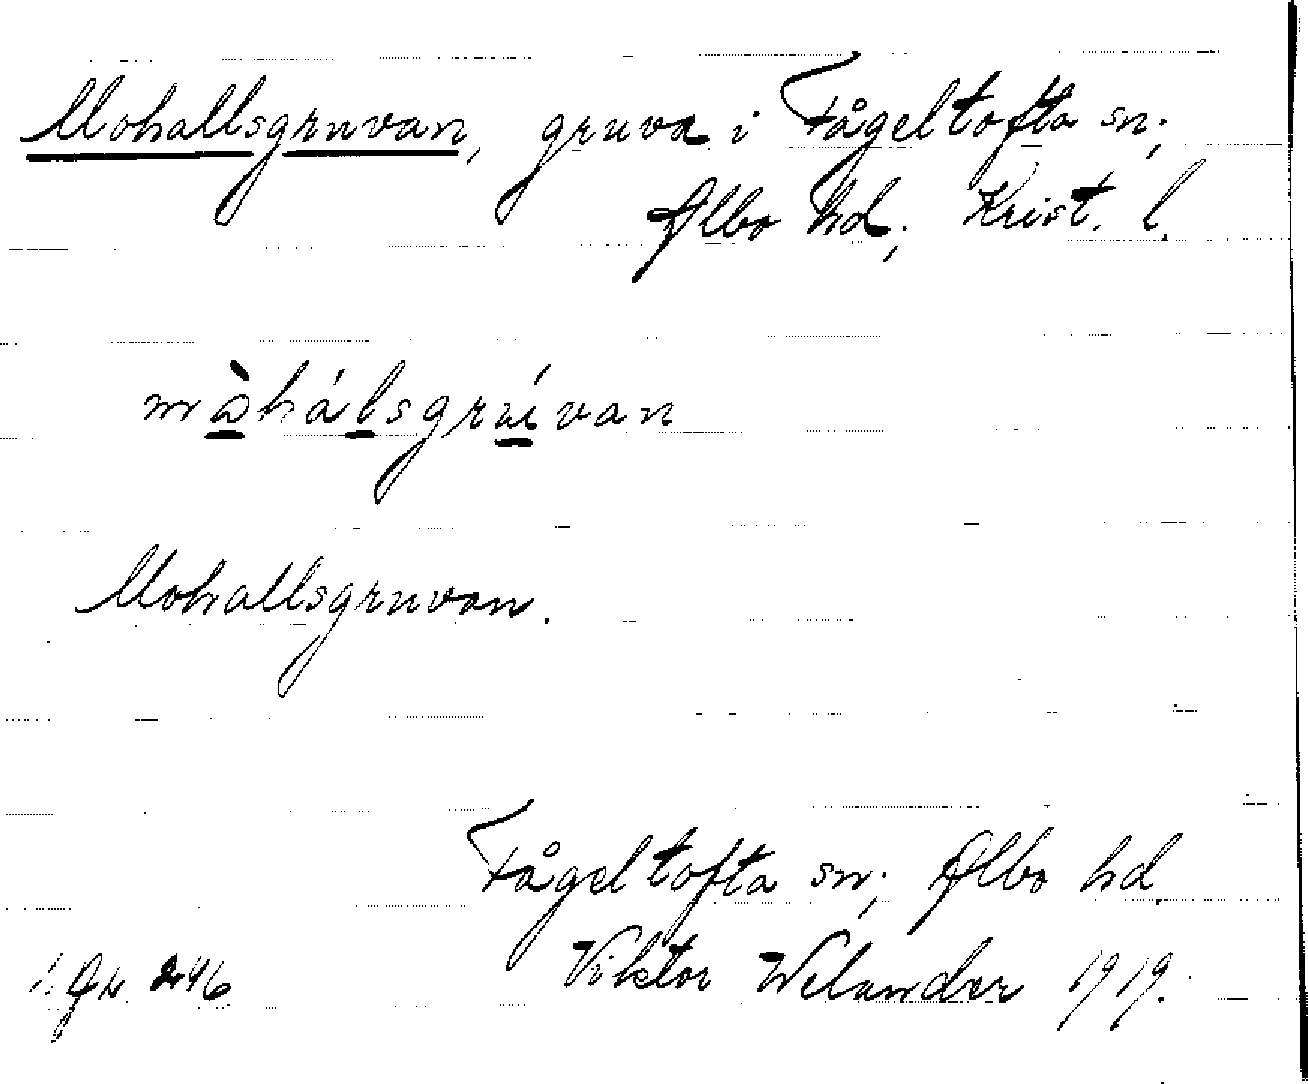 Mohallsgruvan, gruva i Fågeltofta sn;
Albo hd; Krist. l.
màhálsgrúvan
Mohallsgruvan.
Fågeltofta sn; Albo hd.
246. Viktor Welander 1919.